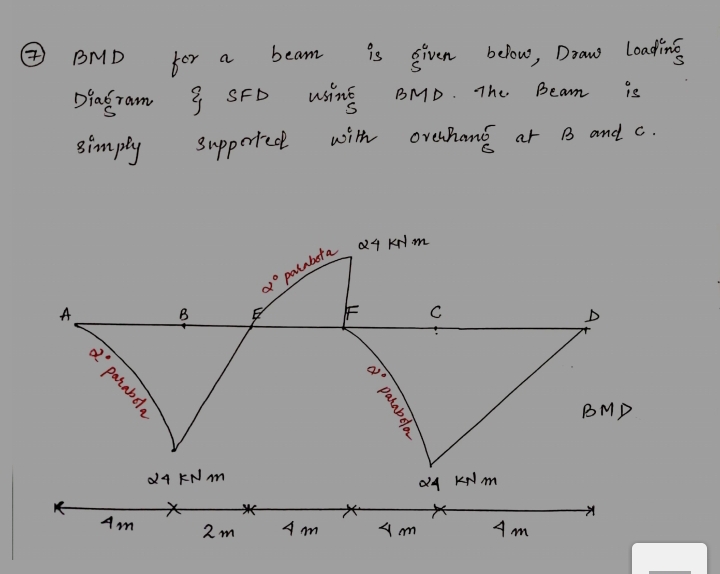 7 BMD for a beam is given below, Draw Loading
Diagram & SFD using BMD. The Beam is
simply supported with overhang at B and C.
24 KN m
2° parabola
A B E F C D
2° parabola
2° parabola
BMD
24 KN m 24 KN m
4m 2m 4m 4m 4m